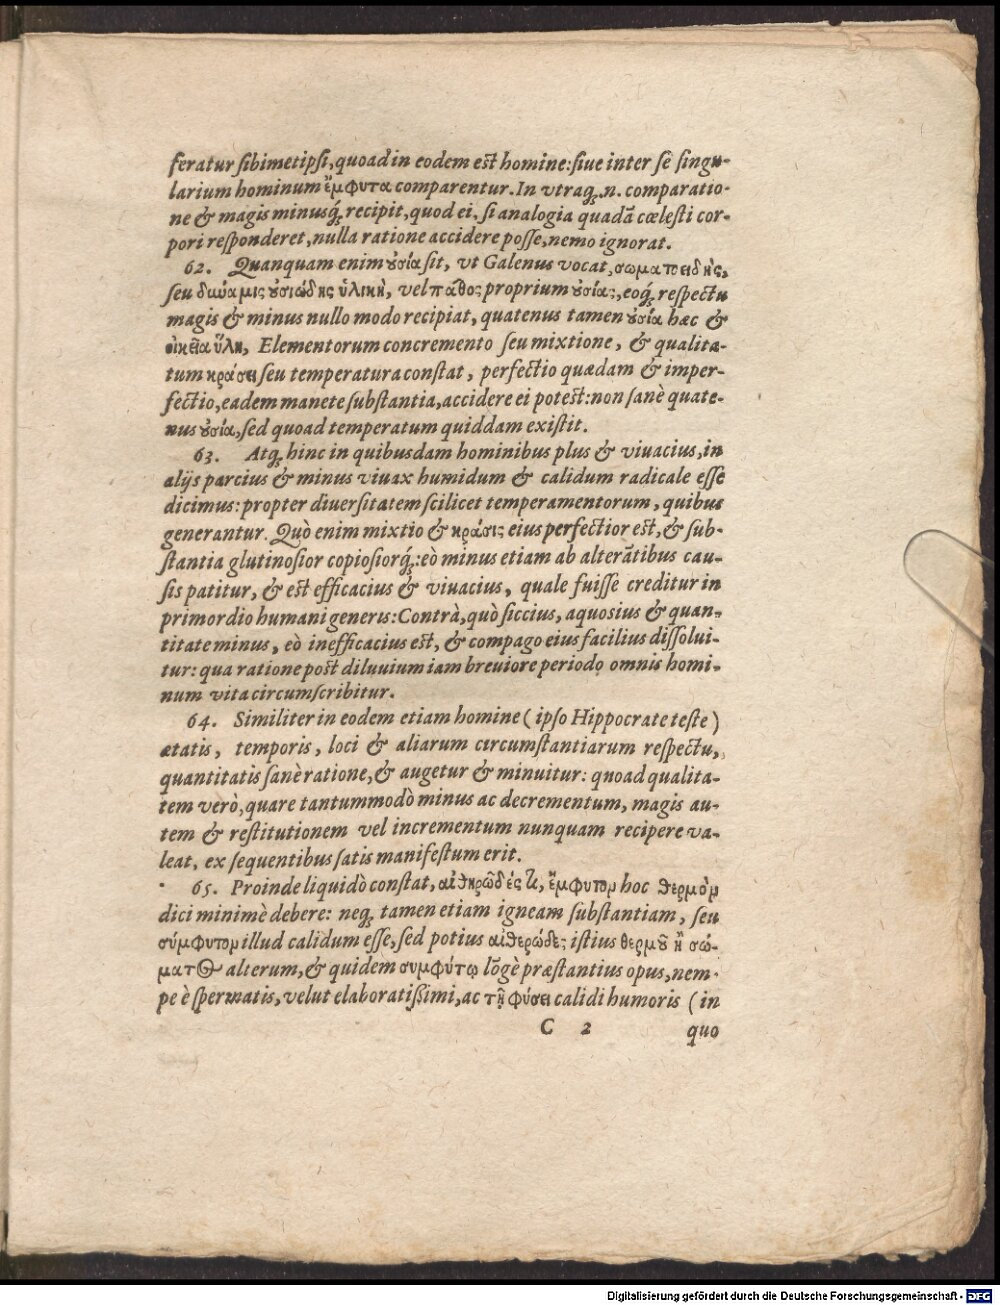 feratur ſibimetipſi, quoad in eodem eſt homine: ſiue inter ſe ſingu-
larium hominum ἔμφυτα comparentur. In vtraq;. n. comparatio-
ne & magis minusq́; recipit, quod ei. ſi analogia quadã cœleſti cor-
pori reſponderet, nulla ratione accidere poſſe, nemo ignorat.
62. Quanquam enim ȣσία ſit, vt Galenus vocat, σωματοειδὴς,
ſeu δυύαμις ȣσιώδης ὑλικὴ, vel πάθος proprium ȣσίας, eoq́; reſpectu
magis & minus nullo modo recipiat, quatenus tamen ȣσία hæc &
οἰκεῖα ὕλη, Elementorum concremento ſeu mixtione, & qualita-
tum κράσει ſeu temperatura conſtat, perfectio quædam & imper-
fectio, eadem manete ſubſtantia, accidere ei poteſt: non ſanè quate-
nus ȣσία, ſed quoad temperatum quiddam exiſtit.
63. Atq; hinc in quibusdam hominibus plus & viuacius, in
alijs parcius & minus viuax humidum & calidum radicale eſſe
dicimus: propter diuerſitatem ſcilicet temperamentorum, quibus
generantur. Quò enim mixtio & κράσις eius perfectior eſt, & ſub-
ſtantia glutinoſior copioſiorq́;: eò minus etiam ab alterãtibus cau-
ſis patitur, & eſt efficacius & viuacius, quale fuiſſe creditur in
primordio humani generis: Contrà, quò ſiccius, aquoſius & quan-
titate minus, eò inefficacius eſt, & compago eius facilius diſſolui-
tur: qua ratione poſt diluuium iam breuiore periodo omnis homi-
num vita circumſcribitur.
64. Similiter in eodem etiam homine (ipſo Hippocrate teſte)
ætatis, temporis, loci & aliarum circumſtantiarum reſpectu,
quantitatis ſanè ratione, & augetur & minuitur: qnoad qualita-
tem verò, quare tantummodò minus ac decrementum, magis au-
tem & reſtitutionem vel incrementum nunquam recipere va-
leat, ex ſequentibus ſatis manifeſtum erit.
65. Proinde liquidò conſtat, αἰθηρῶδές τε, ἔμφυτον hoc θερμὸν
dici minimè debere: neq; tamen etiam igneam ſubſtantiam, ſeu
σύμφυτον illud calidum eſſe, ſed potius αἰθερώδες iſtius θερμȣ̃ ἢ σώ-
ματ⊙ alterum, & quidem συμφύτῳ lõgè præſtantius opus, nem-
pe è ſpermatis, velut elaboratiſſimi, ac τῇ φύσει calidi humoris (in
C 2 quo
Digitalisierung gefördert durch die Deutsche Forschungsgemeinschaft - DFG